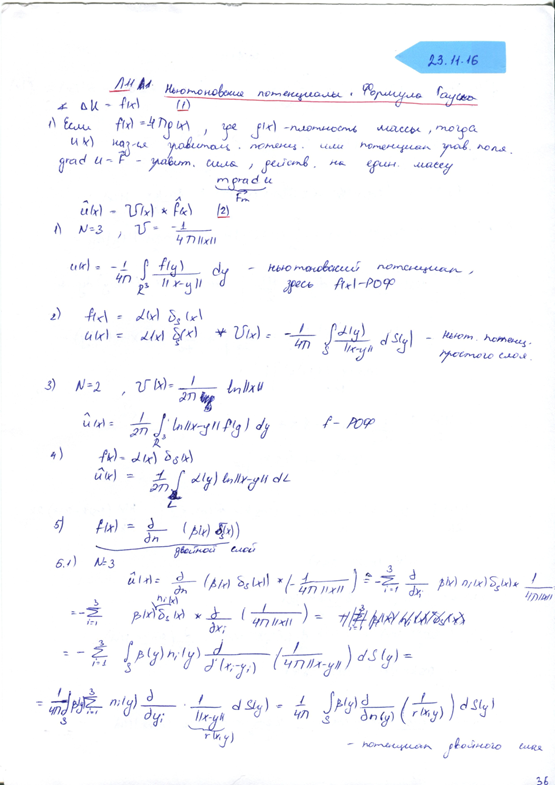 23.11.16
Л11 Ньютоновские потенциалы. Формула Гаусса
∠ Δu = f(x) (1)
1) Если f(x) = 4Πρ(x), где ρ(x) - плотность массы, тогда
u(x) наз-ся гравитац. потенц. или потенциал грав. поля.
grad u = F - гравит. сила, действ. на един. массу
m grad u
Fm
û(x) = V(x) * f̂(x) (2)
1) N=3, V = -1/(4Π||x||)
u(x) = -1/4Π ∫_{R³} f(y)/||x-y|| dy - ньютоновский потенциал,
здесь f(x) - РОФ
2) f(x) = α(x) δ_S(x)
u(x) = α(x) δ_S(x) * V(x) = -1/4Π ∫_S α(y)/||x-y|| dS(y) - ньют. потенц.
простого слоя.
3) N=2, V(x) = 1/2Π ln||x||
û(x) = 1/2Π ∫ ln||x-y|| f(y) dy f - РОФ
4) f(x) = α(x) δ_S(x)
û(x) = 1/2Π ∫_L α(y) ln||x-y|| dL
5) f(x) = ∂/∂n (β(x) δ_S(x))
двойной слой
5.1) N=3
û(x) = ∂/∂n (β(x) δ_S(x)) * (-1/(4Π||x||)) = -∑_{i=1}^{3} ∂/∂x_i β(x) n_i(x) δ_S(x) * 1/(4Π||x||)
= -∑_{i=1}^{3} β(x) n_i(x) δ_S(x) * ∂/∂x_i (1/(4Π||x||)) =
= -∑_{i=1}^{3} ∫_S β(y) n_i(y) ∂/∂(x_i-y_i) (1/(4Π||x-y||)) dS(y) =
= 1/4Π ∫_S β(y) ∑_{i=1}^{3} n_i(y) ∂/∂y_i · 1/||x-y|| dS(y) = 1/4Π ∫_S β(y) ∂/∂n(y) (1/r(x,y)) dS(y)
r(x,y)
- потенциал двойного слоя
36